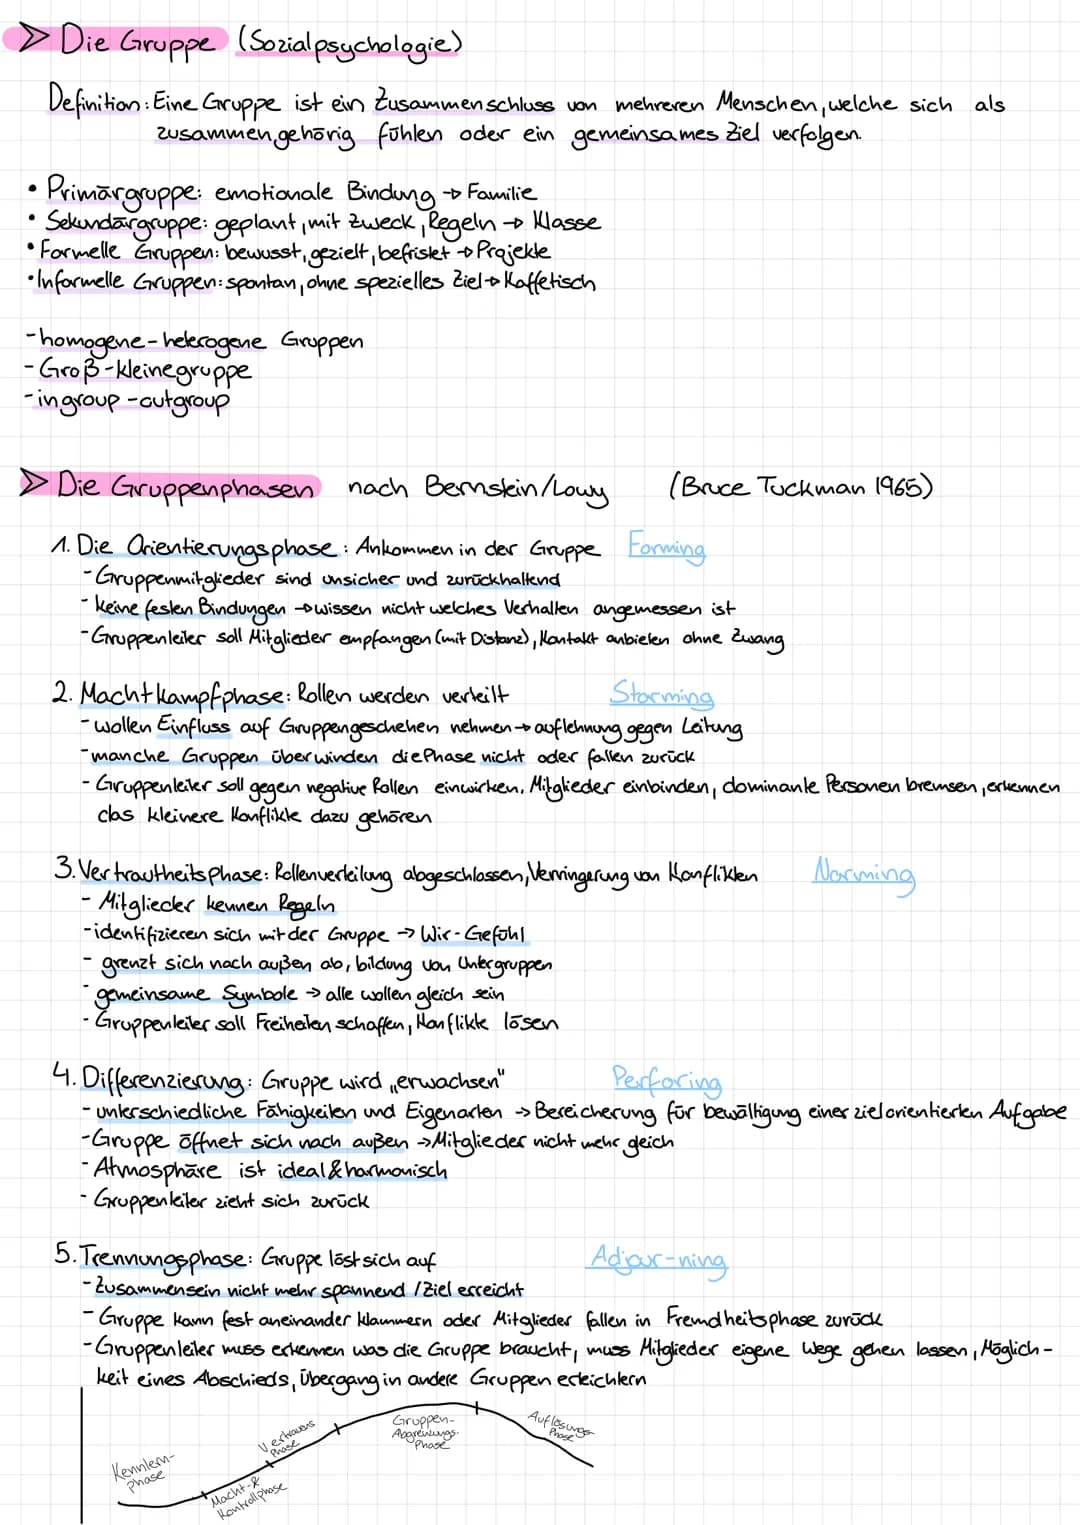 > Die Gruppe (Sozialpsychologie)
Definition: Eine Gruppe ist ein Zusammenschluss von mehreren Menschen, welche sich als
zusammengehörig fühlen oder ein gemeinsames Ziel verfolgen.
• Primärgruppe: emotionale Bindung → Familie
• Sekundärgruppe: geplant, mit Zweck, Regeln → Klasse
• Formelle Gruppen: bewusst, gezielt, befristet → Projekte
• Informelle Gruppen: spontan, ohne spezielles Ziel → Kaffetisch
- homogene - heterogene Gruppen
- Groß - kleinegruppe
- ingroup - outgroup
> Die Gruppenphasen nach Bernstein/Lowy (Bruce Tuckman 1965)
1. Die Orientierungsphase: Ankommen in der Gruppe Forming
- Gruppenmitglieder sind unsicher und zurückhaltend
- keine festen Bindungen → wissen nicht welches Verhalten angemessen ist
- Gruppenleiter soll Mitglieder empfangen (mit Distanz), Kontakt anbieten ohne Zwang
2. Machtkampfphase: Rollen werden verteilt Storming
- wollen Einfluss auf Gruppengeschehen nehmen → auflehnung gegen Leitung
- manche Gruppen überwinden die Phase nicht oder fallen zurück
- Gruppenleiter soll gegen negative Rollen einwirken, Mitglieder einbinden, dominante Personen bremsen, erkennen
das kleinere Konflikte dazu gehören
3. Vertrautheitsphase: Rollenverteilung abgeschlossen, Verringerung von Konflikten Norming
- Mitglieder kennen Regeln
- identifizieren sich mit der Gruppe → Wir-Gefühl
- grenzt sich nach außen ab, bildung von Untergruppen
- gemeinsame Symbole → alle wollen gleich sein
- Gruppenleiter soll Freiheiten schaffen, Konflikte lösen
4. Differenzierung: Gruppe wird „erwachsen" Perforing
- unterschiedliche Fähigkeiten und Eigenarten → Bereicherung für bewältigung einer zielorientierten Aufgabe
- Gruppe öffnet sich nach außen → Mitglieder nicht mehr gleich
- Atmosphäre ist ideal & harmonisch
- Gruppenleiter zieht sich zurück
5. Trennungsphase: Gruppe löst sich auf Adjour-ning
- Zusammensein nicht mehr spannend / Ziel erreicht
- Gruppe kann fest aneinander klammern oder Mitglieder fallen in Fremdheitsphase zurück
- Gruppenleiter muss erkennen was die Gruppe braucht, muss Mitglieder eigene Wege gehen lassen, Möglich-
keit eines Abschieds, Übergang in andere Gruppen erleichtern
Kennlern-
phase
Macht-&
Kontrollphase
Vertrauens
Phase
Gruppen-
Abgrenzungs-
Phase
Auflösungs-
Phase